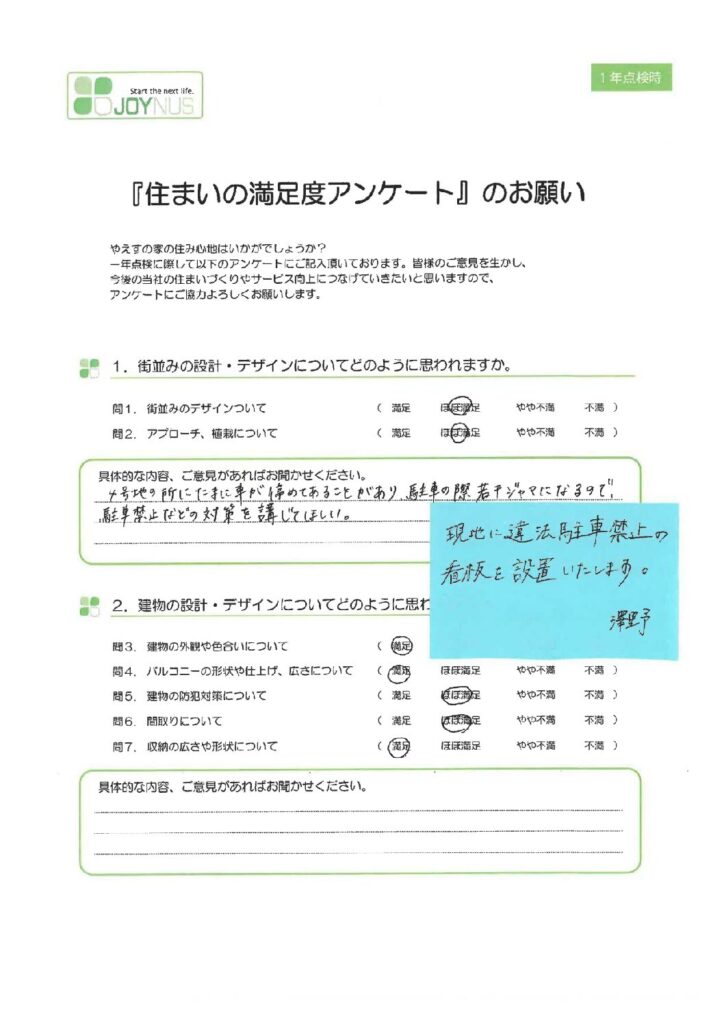 Start the next life.
JOYNUS
1年点検時
『住まいの満足度アンケート』のお願い
やえすの家の住み心地はいかがでしょうか?
一年点検に際して以下のアンケートにご記入頂いております。皆様のご意見を生かし、
今後の当社の住まいづくりやサービス向上につなげていきたいと思いますので、
アンケートにご協力よろしくお願いします。
1. 街並みの設計・デザインについてどのように思われますか。
問1. 街並みのデザインついて ( 満足 ほぼ満足 やや不満 不満 )
問2. アプローチ、植栽について ( 満足 ほぼ満足 やや不満 不満 )
具体的な内容、ご意見があればお聞かせください。
4号地の所にたまに車が停めてあることがあり、駐車の際若干ジャマになるので、
駐車禁止などの対策を講じてほしい。
現地に違法駐車禁止の
看板を設置いたします。
澤野
2. 建物の設計・デザインについてどのように思わ
問3. 建物の外観や色合いについて ( 満足
問4. バルコニーの形状や仕上げ、広さについて ( 満足 ほぼ満足 やや不満 不満 )
問5. 建物の防犯対策について ( 満足 ほぼ満足 やや不満 不満 )
問6. 間取りについて ( 満足 ほぼ満足 やや不満 不満 )
問7. 収納の広さや形状について ( 満足 ほぼ満足 やや不満 不満 )
具体的な内容、ご意見があればお聞かせください。